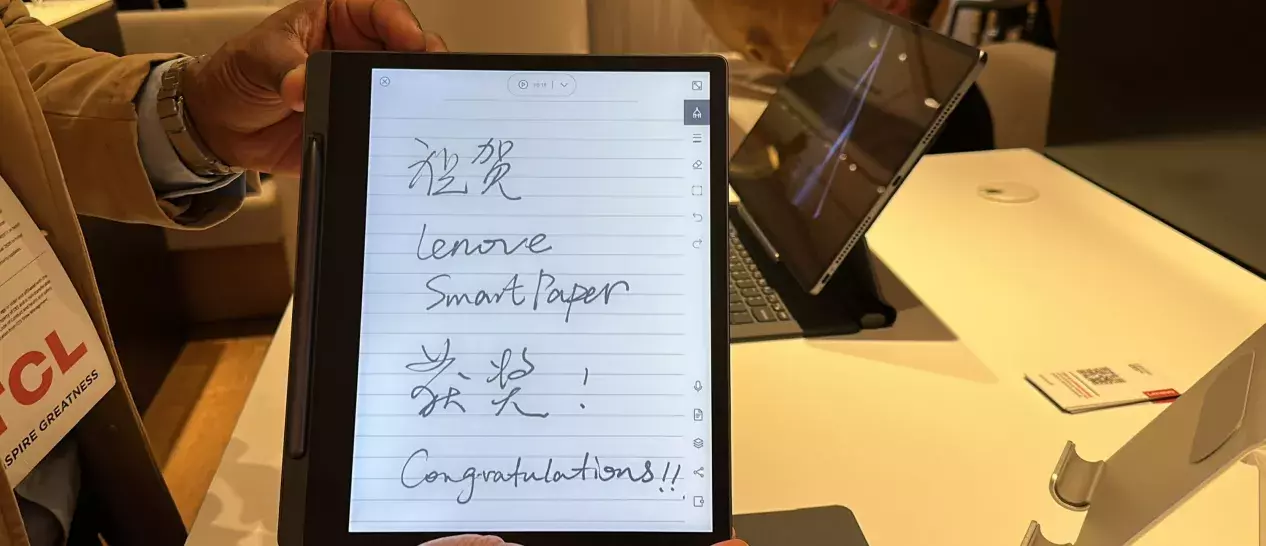 祝贺
Lenove
Smart Paper
获奖!
Congratulations!!
TCL
SPIRE GREATNESS